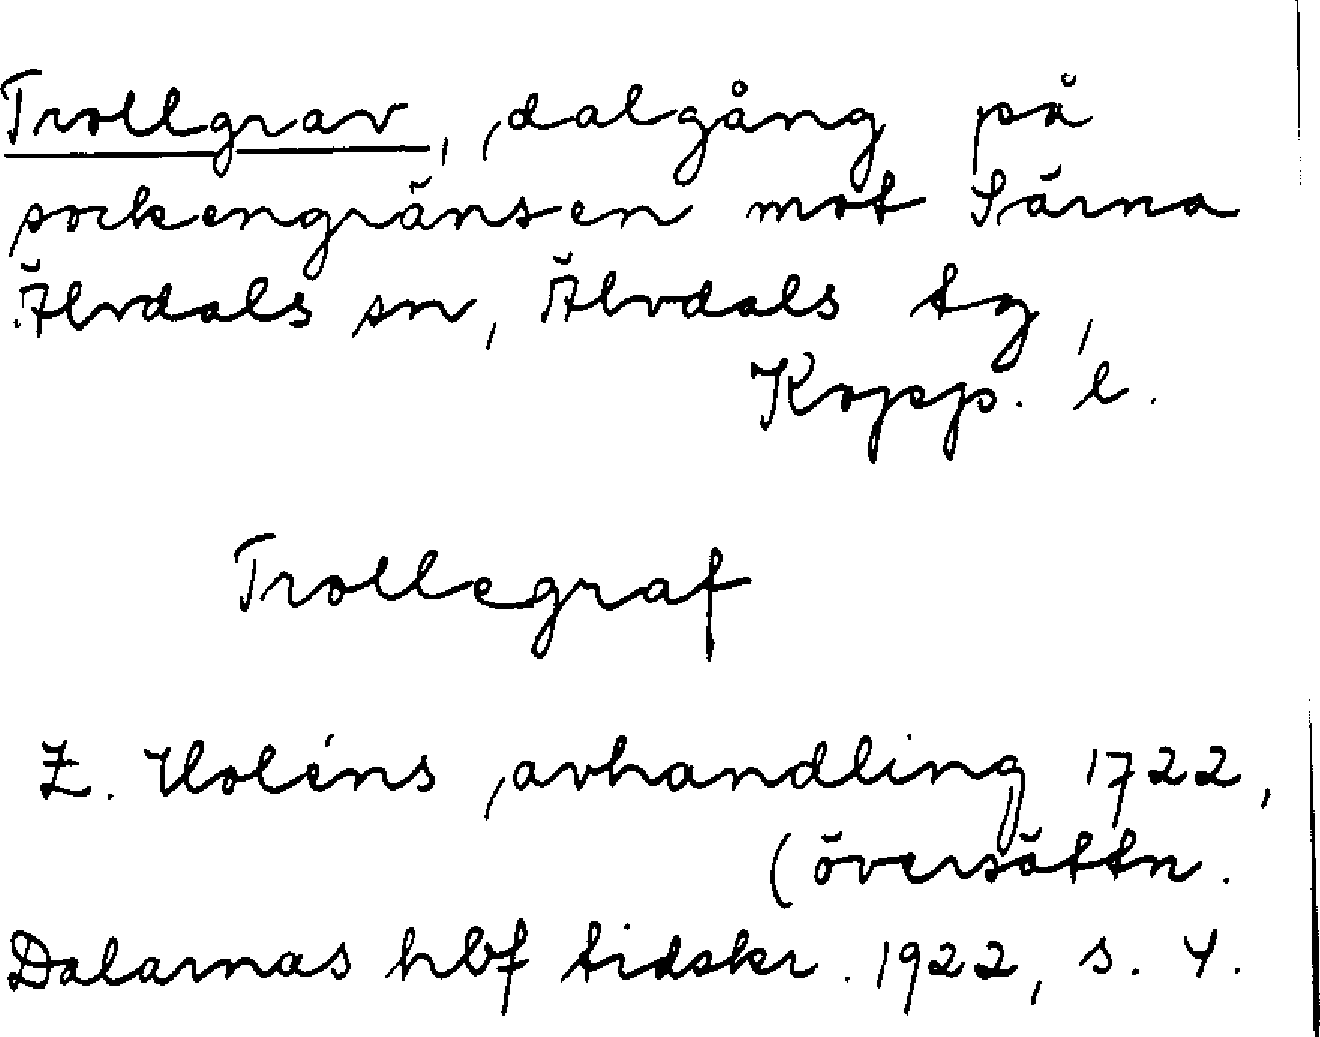 Trollgrav, dalgång på
sockengränsen mot Särna
Älvdals sn, Älvdals tg,
Kopp. l.
Trollegraf
Z. Holéns avhandling 1722,
(översättn.
Dalarnas hbf tidskr. 1922, s. 4.